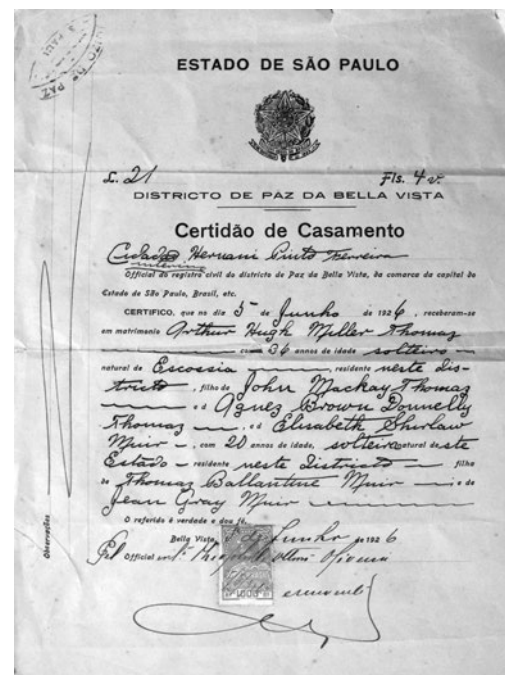 ESTADO DE SÃO PAULO
L. 21 Fls. 4 v.
DISTRICTO DE PAZ DA BELLA VISTA
Certidão de Casamento
Cidadão Hernani Pinto Ferreira
interino
Official do registro civil do districto de Paz da Bella Vista, da comarca da capital do
Estado de São Paulo, Brasil, etc.
CERTIFICO, que no dia 5 de Junho de 1926, receberam-se
em matrimonio Arthur Hugh Miller Thomaz
com 36 annos de idade solteiro
natural de Escossia, residente neste dis-
tricto, filho de John Mackay Thomaz
e d Agnez Brown Donnelly
Thomaz e d Elisabeth Shirlaw
Muir, com 20 annos de idade, solteira natural deste
Estado residente neste Districto filha
de Thomaz Ballantine Muir e de
Jean Gray Muir
O referido é verdade e dou fé.
Bella Vista, 5 de Junho de 1926
Official
Observações